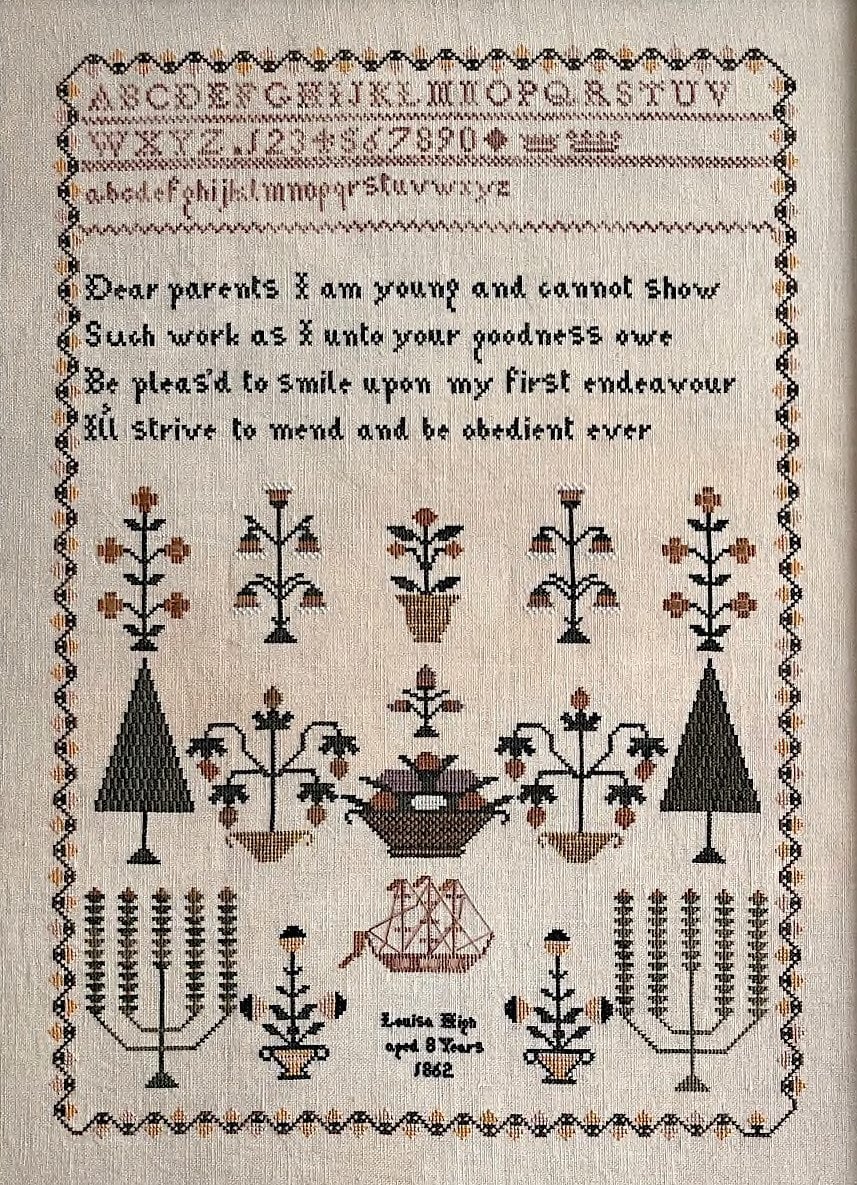 ABCDEFGHIJKLMNOPQRSTUV
WXYZ.1234567890
abcdefghijklmnopqrstuvwxyz
Dear parents I am young and cannot show
Such work as I unto your goodness owe
Be pleas'd to smile upon my first endeavour
I'll strive to mend and be obedient ever
Louisa High
aged 8 Years
1862